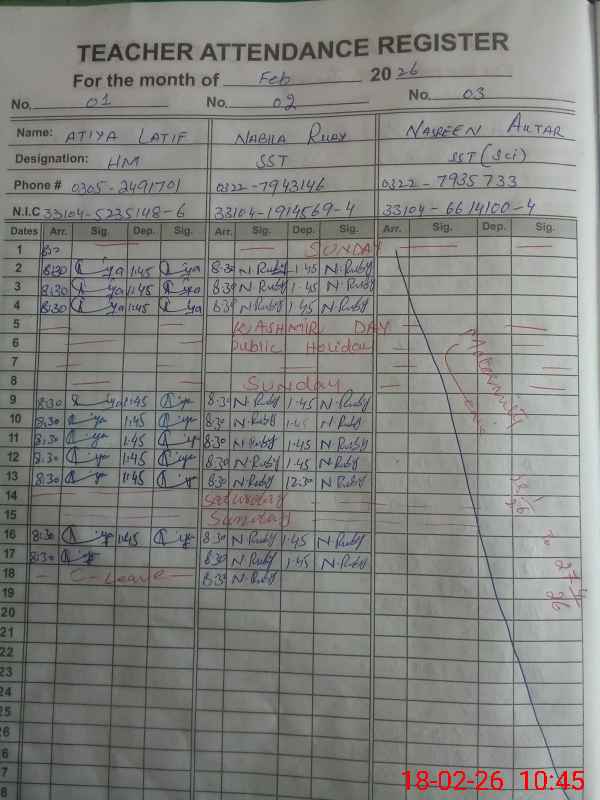 TEACHER ATTENDANCE REGISTER
For the month of Feb 2026
No. 01 No. 02 No. 03
Name: ATIYA LATIF NABILA RUBY NASREEN AKTAR
Designation: HM SST SST (Sci)
Phone # 0305-2491701 0322-7943146 0322-7935733
N.I.C 33104-5235148-6 33104-1914569-4 33104-6614100-4
Dates Arr. Sig. Dep. Sig. Arr. Sig. Dep. Sig. Arr. Sig. Dep. Sig.
1 SUNDAY
2 8:30 1:45 8:30 N.Ruby 1:45 N.Ruby
3 8:30 1:45 8:30 N.Ruby 1:45 N.Ruby
4 8:30 1:45 8:30 N.Ruby 1:45 N.Ruby
5 KASHMIR DAY
6 Public Holiday
7
8 Sunday
9 8:30 1:45 8:30 N.Ruby 1:45 N.Ruby
10 8:30 1:45 8:30 N.Ruby 1:45 N.Ruby
11 8:30 1:45 8:30 N.Ruby 1:45 N.Ruby
12 8:30 1:45 8:30 N.Ruby 1:45 N.Ruby
13 8:30 1:45 8:30 N.Ruby 12:30 N.Ruby
14 Saturday
15 Sunday
16 8:30 1:45 8:30 N.Ruby 1:45 N.Ruby
17 8:30 8:30 N.Ruby 1:45 N.Ruby
18 C-Leave 8:30 N.Ruby
19
20
21
22
23
24
25
26
7
8
Maternity
18-02-26 10:45